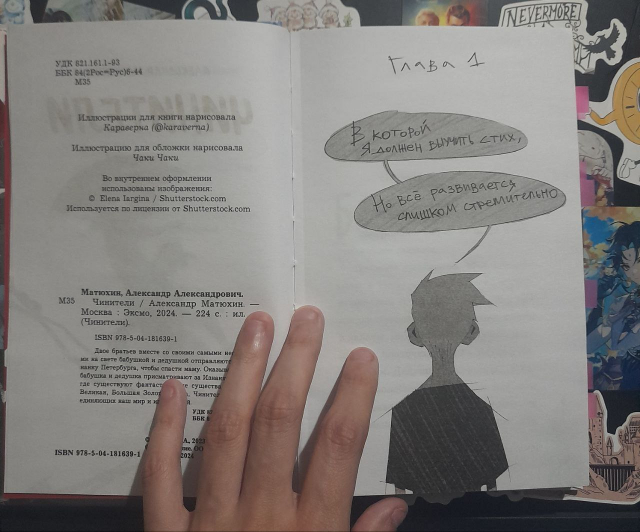 УДК 821.161.1-93
ББК 84(2Рос=Рус)6-44
М35
Иллюстрации для книги нарисовала
Караверна (@karaverna)
Иллюстрацию для обложки нарисовала
Чаки Чаки
Во внутреннем оформлении
использованы изображения:
© Elena Iargina / Shutterstock.com
Используется по лицензии от Shutterstock.com
Матюхин, Александр Александрович.
М35 Чинители / Александр Матюхин. —
Москва : Эксмо, 2024. — 224 с. : ил.
(Чинители).
ISBN 978-5-04-181639-1
Двое братьев вместе со своими самыми
ми на свете бабушкой и дедушкой отправляют
нанку Петербурга, чтобы спасти маму.
бабушка и дедушка
где существуют
Великая, Большая
единяющих ваш мир и
УДК
ББК
ISBN 978-5-04-181639-1
Глава 1
В которой
я должен выучить стих,
Но всё развивается
слишком стремительно
NEVERMORE